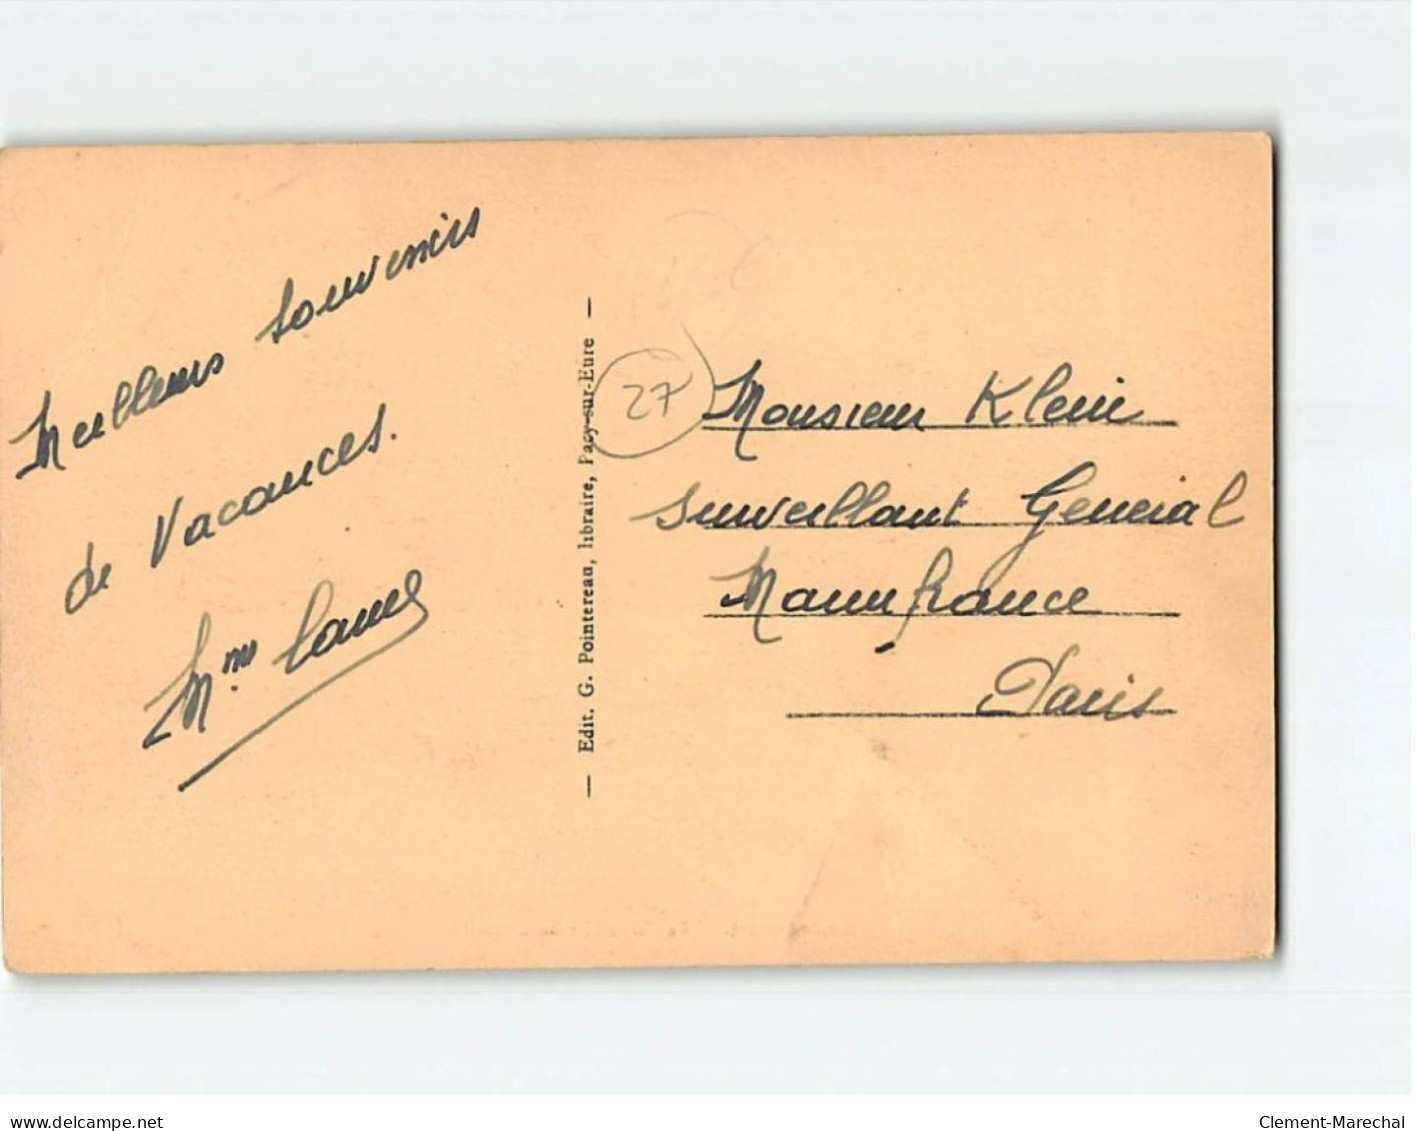 Meilleurs souvenirs
de Vacances.
Mme
— Edit. G. Pointereau, libraire, Pacy-sur-Eure —
27
Monsieur Klein
Surveillant General
Manufrance
Paris
delcampe.net
Clement-Marechal